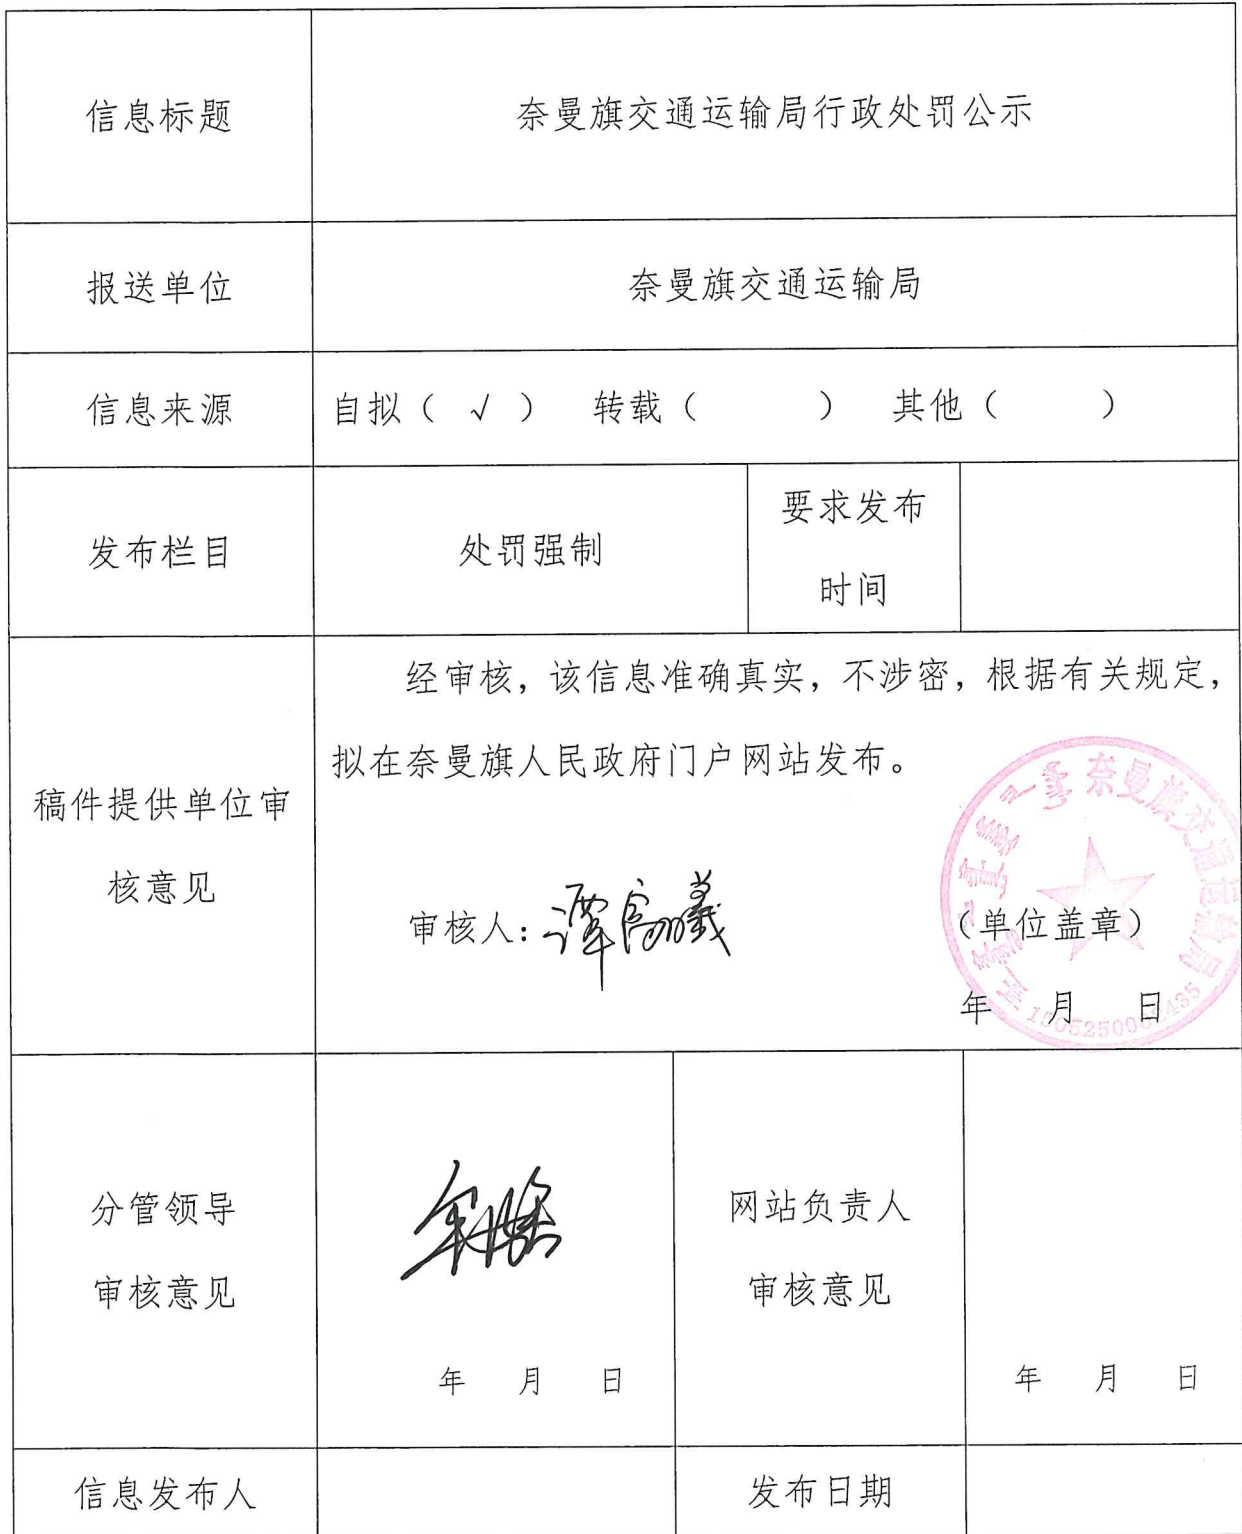 信息标题
奈曼旗交通运输局行政处罚公示
报送单位
奈曼旗交通运输局
信息来源
自拟（ √ ） 转载（ ） 其他（ ）
发布栏目
处罚强制
要求发布
时间
稿件提供单位审
核意见
经审核，该信息准确真实，不涉密，根据有关规定，
拟在奈曼旗人民政府门户网站发布。
奈曼旗交通运输局
审核人：
（单位盖章）
年 月 日
分管领导
审核意见
年 月 日
网站负责人
审核意见
年 月 日
信息发布人
发布日期